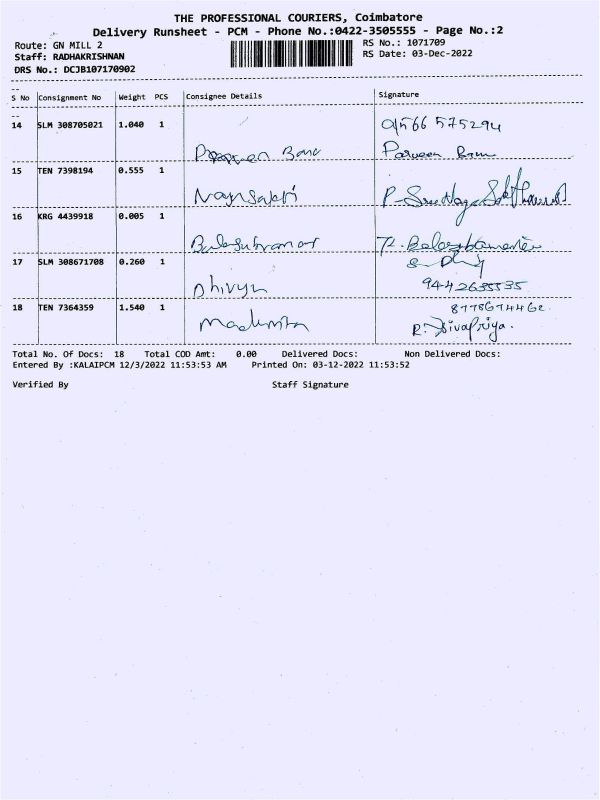 THE PROFESSIONAL COURIERS, Coimbatore
Delivery Runsheet - PCM - Phone No.:0422-3505555 - Page No.:2
Route: GN MILL 2
Staff: RADHAKRISHNAN
DRS No.: DCJB107170902
RS No.: 1071709
RS Date: 03-Dec-2022
S No Consignment No Weight PCS Consignee Details Signature
14 SLM 308705021 1.040 1 9566 575294
Bano Parveen Banu
15 TEN 7398194 0.555 1
Nagasakti
16 KRG 4439918 0.005 1
Balasubramani
17 SLM 308671708 0.260 1
Dhivya 9442635535
18 TEN 7364359 1.540 1 8778674462.
Madumita R. Sivapriya.
Total No. Of Docs: 18 Total COD Amt: 0.00 Delivered Docs: Non Delivered Docs:
Entered By :KALAIPCM 12/3/2022 11:53:53 AM Printed On: 03-12-2022 11:53:52
Verified By Staff Signature